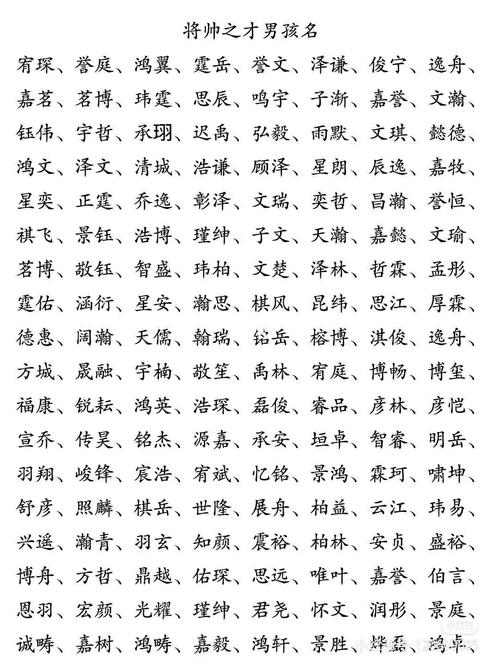 将帅之才男孩名
宥琛、誉庭、鸿翼、霆岳、誉文、泽谦、俊宁、逸舟、
嘉茗、茗博、玮霆、思辰、鸣宇、子渐、嘉誉、文瀚、
钰伟、宇哲、承珝、迟禹、弘毅、雨默、文琪、懿德、
鸿文、泽文、清城、浩谦、顾泽、星朗、辰逸、嘉牧、
星奕、正霆、乔逸、彰泽、文瑞、奕哲、昌瀚、誉恒、
祺飞、景钰、浩博、瑾绅、子文、天瀚、嘉懿、文瑜、
茗博、敬钰、智盛、玮柏、文楚、泽林、哲霖、孟彤、
霆佑、涵衍、星安、瀚思、棋风、昆纬、思江、厚霖、
德惠、阔瀚、天儒、翰瑞、铭岳、榕博、淇俊、逸舟、
方城、晟融、宇楠、敬笙、禹林、宥庭、博畅、博玺、
福康、锐耘、鸿英、浩琛、磊俊、睿品、彦林、彦恺、
宣乔、传昊、铭杰、源嘉、承安、垣卓、智睿、明岳、
羽翔、峻锋、宸浩、宥斌、忆铭、景鸿、霖珂、啸坤、
舒彦、照麟、棋岳、世隆、展舟、柏益、云江、玮易、
兴遥、瀚青、羽玄、知颜、震裕、柏林、安贞、盛裕、
博舟、方哲、鼎越、佑琛、思远、唯叶、嘉誉、伯言、
恩羽、宏颜、光耀、瑾绅、君尧、怀文、润彤、景庭、
诚畴、嘉树、鸿畴、嘉毅、鸿轩、景胜、烨磊、鸿卓、
小红书